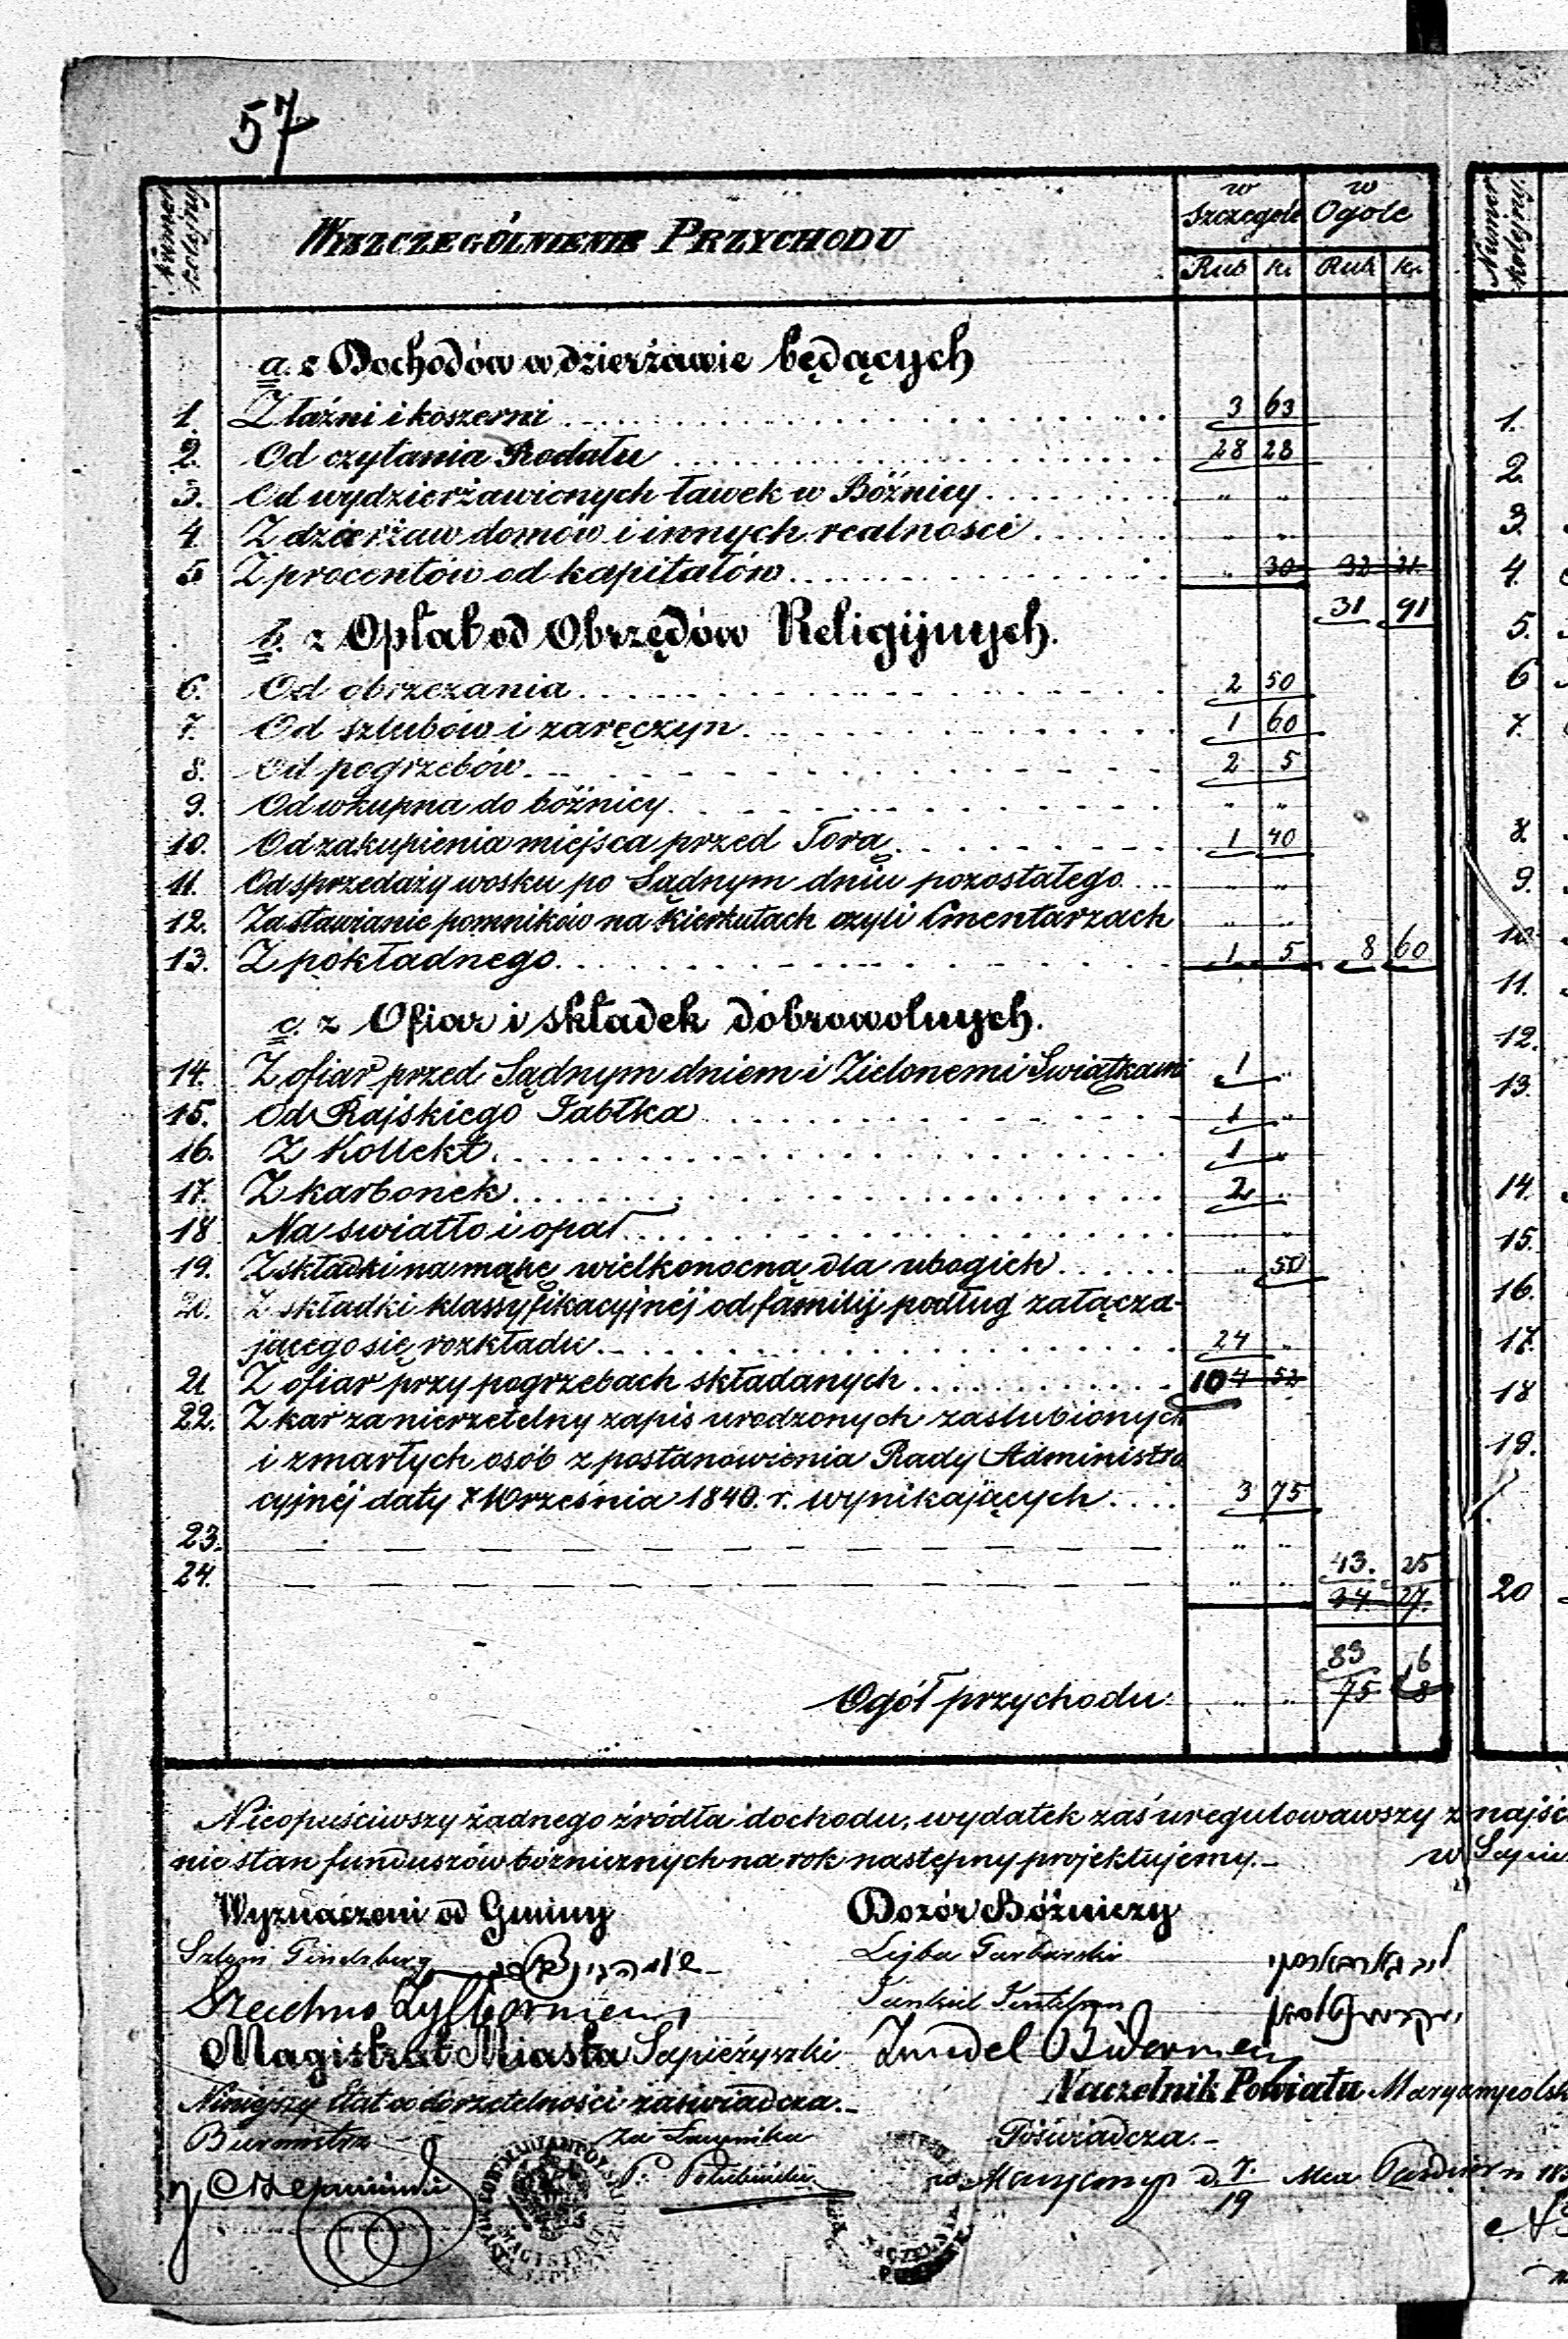 57
Numer kolejny
WYSZCZEGÓLNIENIE PRZYCHODU
w Szczególe
w Ogóle
Rub k. Rub k.
Numer kolejny
a. z Dochodów w dzierżawie będących
1. Z łaźni i koszerni 3 63
2. Od czytania Rodału 28 28
3. Od wydzierżawionych ławek w Bóżnicy " "
4. Z dzierżaw domów i innych realności " "
5. Z procentów od kapitałów " 30 32 21
31 91
b. z Opłat od Obrzędów Religijnych.
6. Od obrzezania 2 50
7. Od szlubów i zaręczyn 1 60
8. Od pogrzebów 2 5
9. Od wkupna do bóżnicy " "
10. Od zakupienia miejsca przed Torą 1 40
11. Od sprzedaży wosku po Sądnym dniu pozostałego " "
12. Za stawianie pomników na kierkutach czyli Cmentarzach " "
13. Z pokładnego 1 5 8 60
c. z Ofiar i składek dobrowolnych.
14. Z ofiar przed Sądnym dniem i Zielonemi Swiątkami 1 "
15. Od Rajskiego Jabłka 1 "
16. Z Kollekt 1 "
17. Z karbonek 2 "
18 Na swiatło i opał " "
19. Z składki na mąkę wielkonocną dla ubogich " 50
20. Z składki klassyfikacyjnéj od familij podług załącza-
jącego się rozkładu 24 "
21 Z ofiar przy pogrzebach składanych 10 4 52
22. Z kar za nierzetelny zapis urodzonych zaslubionych
i zmarłych osób z postanowienia Rady Administra
cyjnéj daty 7 Września 1840. r. wynikających 3 75
23. " "
24. " " 43. 25
34 27.
83 16
Ogół przychodu " " 75 8
Nieopuściwszy żadnego źródła dochodu, wydatek zaś uregulowawszy
nie stan funduszów bóżnicznych na rok następny projektujemy.
Wyznaczeni od Gminy
Dozór Bóżniczy
Lejba
Magistrat Miasta Sapieżyszki
Naczelnik Powiatu
Niniejszy Etat co do rzetelności zaświadcza.
Burmistrz
za Ławnika
Poświadcza.
1.
2.
3.
4.
5.
6
7.
8.
9.
10.
11.
12.
13.
14.
15.
16.
17.
18
19.
20